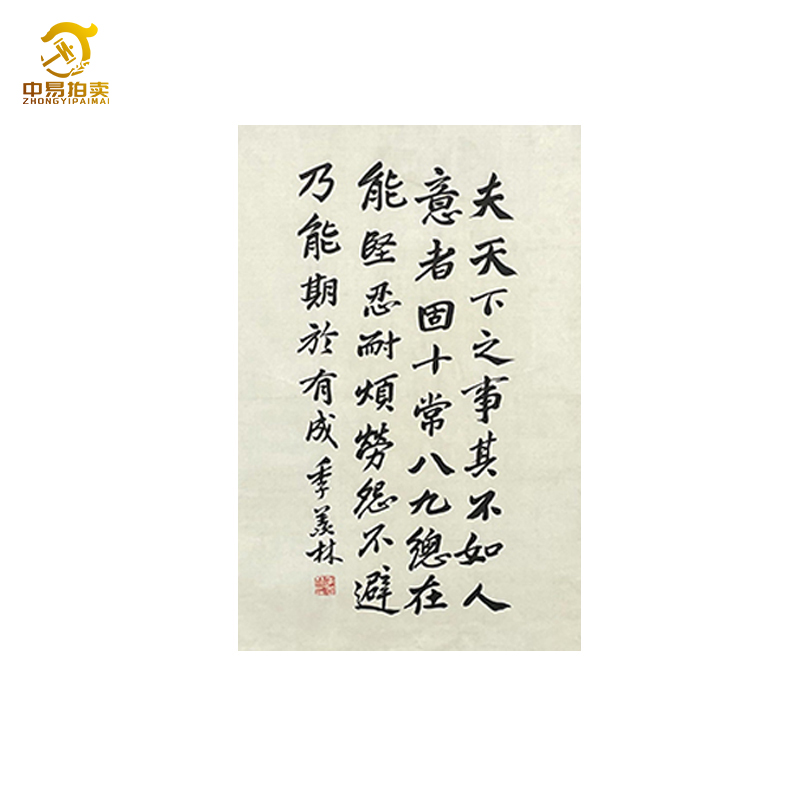 中易拍卖
ZHONGYIPAIMAI
夫天下之事其不如人
意者固十常八九總在
能堅忍耐煩勞怨不避
乃能期於有成 季羨林